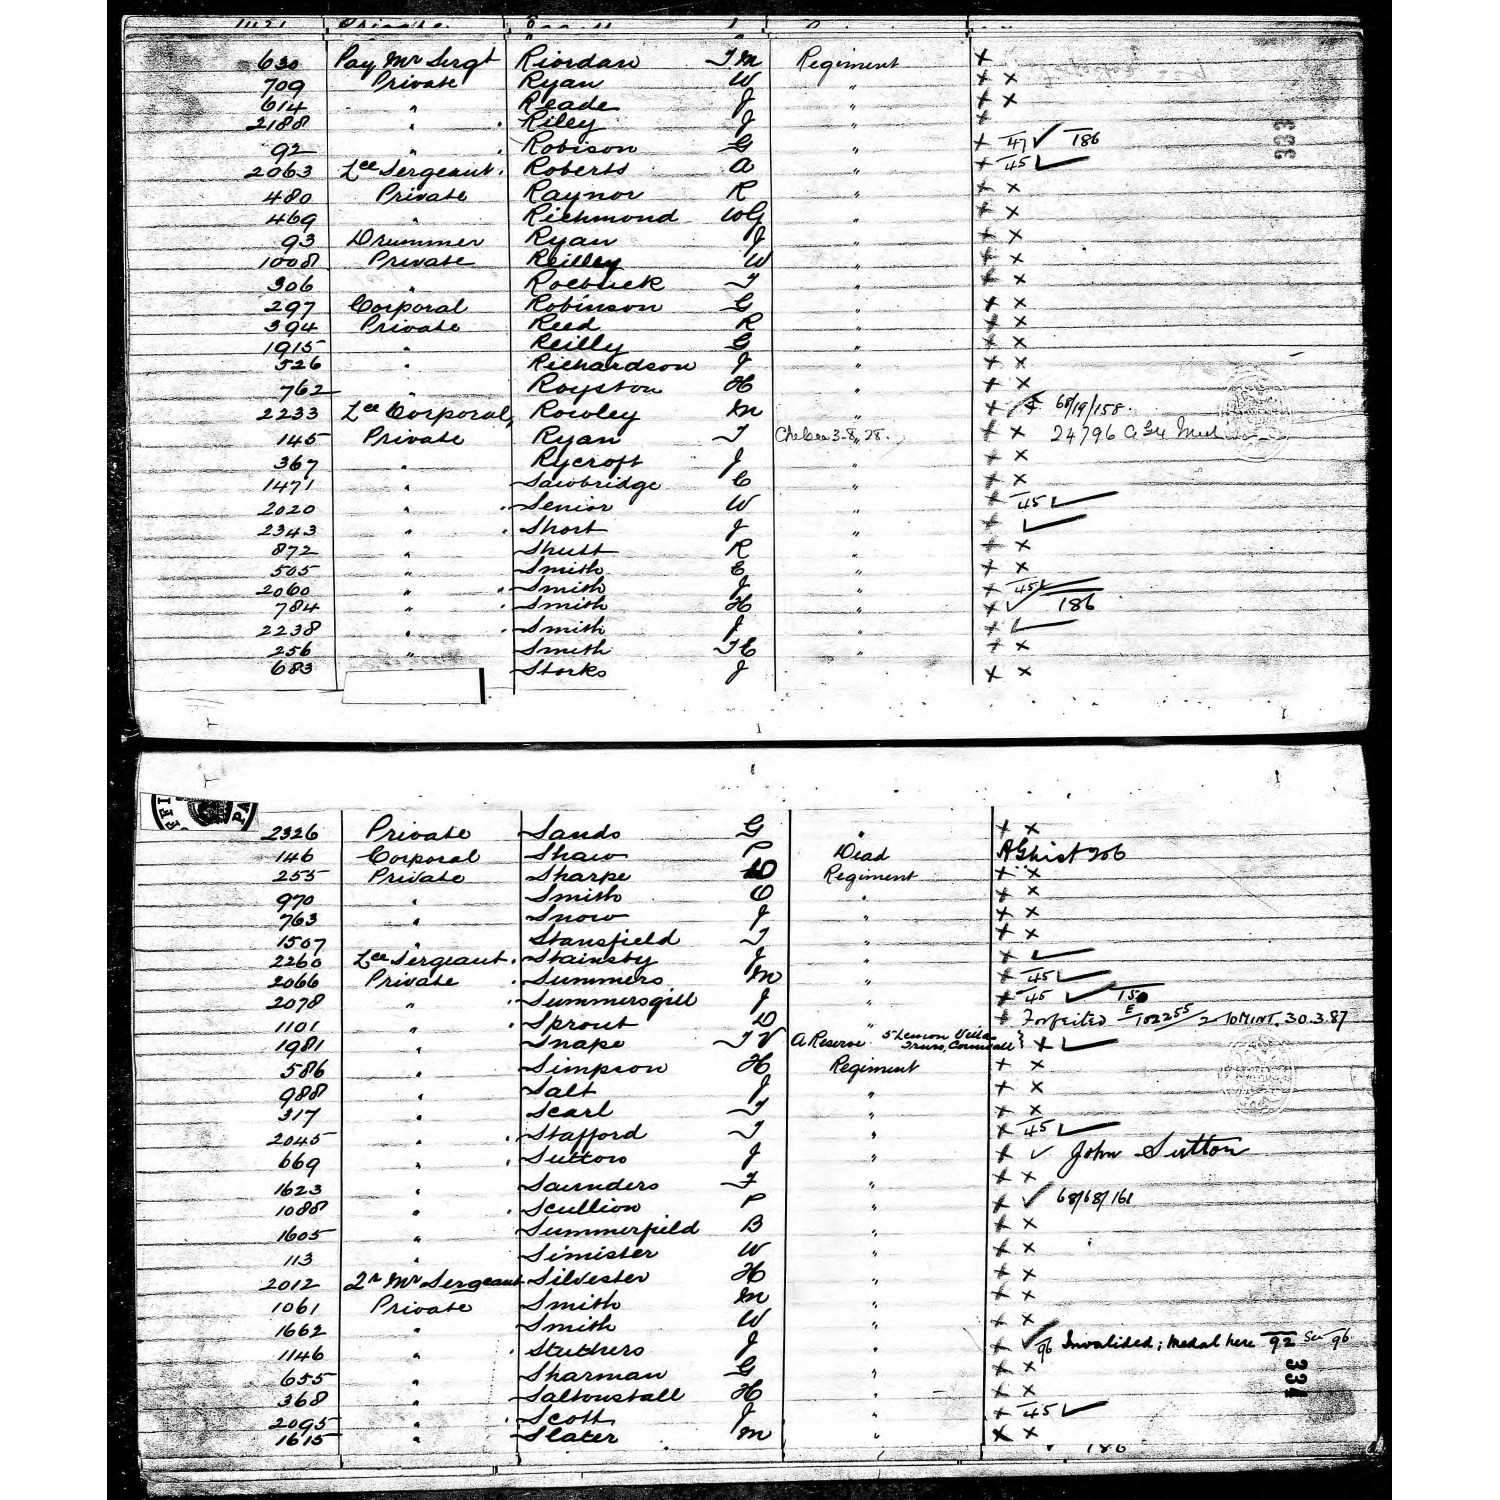 1421 Private
630 Pay Mr Sergt Riordan T M Regiment x
709 Private Ryan W " x x
614 " Reade J " x x
2188 " Riley J " x
92 " Robison G " x 47 ✓ 186
2063 Lce Sergeant Roberts A " x 45 ✓
480 Private Raynor R " x x
469 " Richmond W G " x x
93 Drummer Ryan J " x x
1008 Private Reilley W " x x
306 " Roebuck T " x x
297 Corporal Robinson G " x x
394 Private Reed R " x x
1915 " Reilly G " x x
526 " Richardson J " x x
762 " Royston H " x x
2233 Lce Corporal Rowley M " x x 68/19/158.
145 Private Ryan T Chelsea 3-8-28. x x 24796
367 " Rycroft J " x x
1471 " Sawbridge C " x x
2020 " Senior W " x 45 ✓
2343 " Short J " x ✓
872 " Shutt R " x x
505 " Smith E " x x
2060 " Smith J " x 45 ✓
784 " Smith H " x ✓ 186
2238 " Smith J " x ✓
256 " Smith T E " x x
683 Storks J x x
333
2326 Private Sands G " x x
146 Corporal Shaw P Dead
255 Private Sharpe D Regiment x x
970 " Smith O " x x
763 " Snow J " x x
1507 " Stansfield T " x x
2260 Lce Sergeant Stainsby J " x ✓
2066 Private Summers M " x 45 ✓
2078 " Summersgill J " x 45 ✓ 150
1101 " Sprout D " x Forfeited E/102255/2 to MINT. 30.3.87
1981 " Snape T V A Reserve 5 Lemon Villa Truro, Cornwall } x ✓
586 " Simpson H Regiment x x
988 " Salt J " x x
317 " Scarl T " x x
2045 " Stafford T " x 45 ✓
669 " Sutton J " x ✓ John Sutton
1623 " Saunders T " x x
1088 " Scullion P " x ✓ 68/68/161
1605 " Summerfield B " x x
113 " Simister W " x x
2012 Qr Mr Sergeant Silvester H " x x
1061 Private Smith M " x x
1662 " Smith W "
1146 " Stuthers J " x ✓ 96 Invalided; Medal here 92 See 96
655 " Sharman G " x x
368 " Saltonstall H " x x
2095 " Scott J " x 45 ✓
1615 " Slater M " x x
180
334